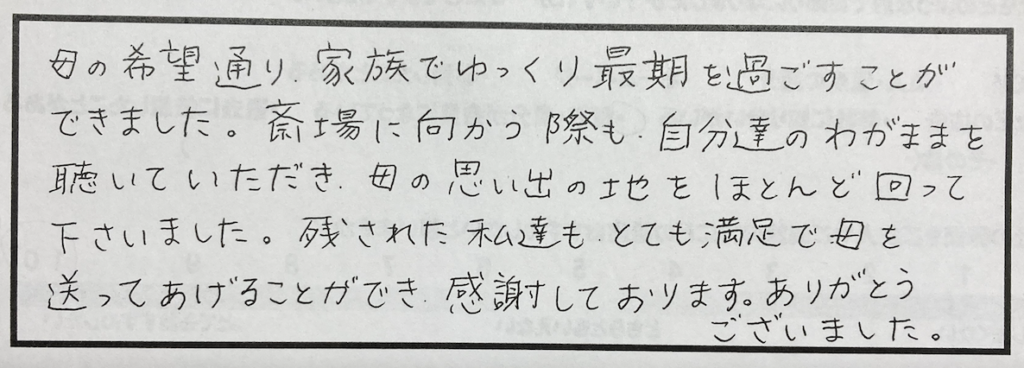 母の希望通り家族でゆっくり最期を過ごすことが
できました。斎場に向かう際も、自分達のわがままを
聴いていただき、母の思い出の地をほとんど回って
下さいました。残された私達も、とても満足で母を
送ってあげることができ、感謝しております。ありがとう
ございました。